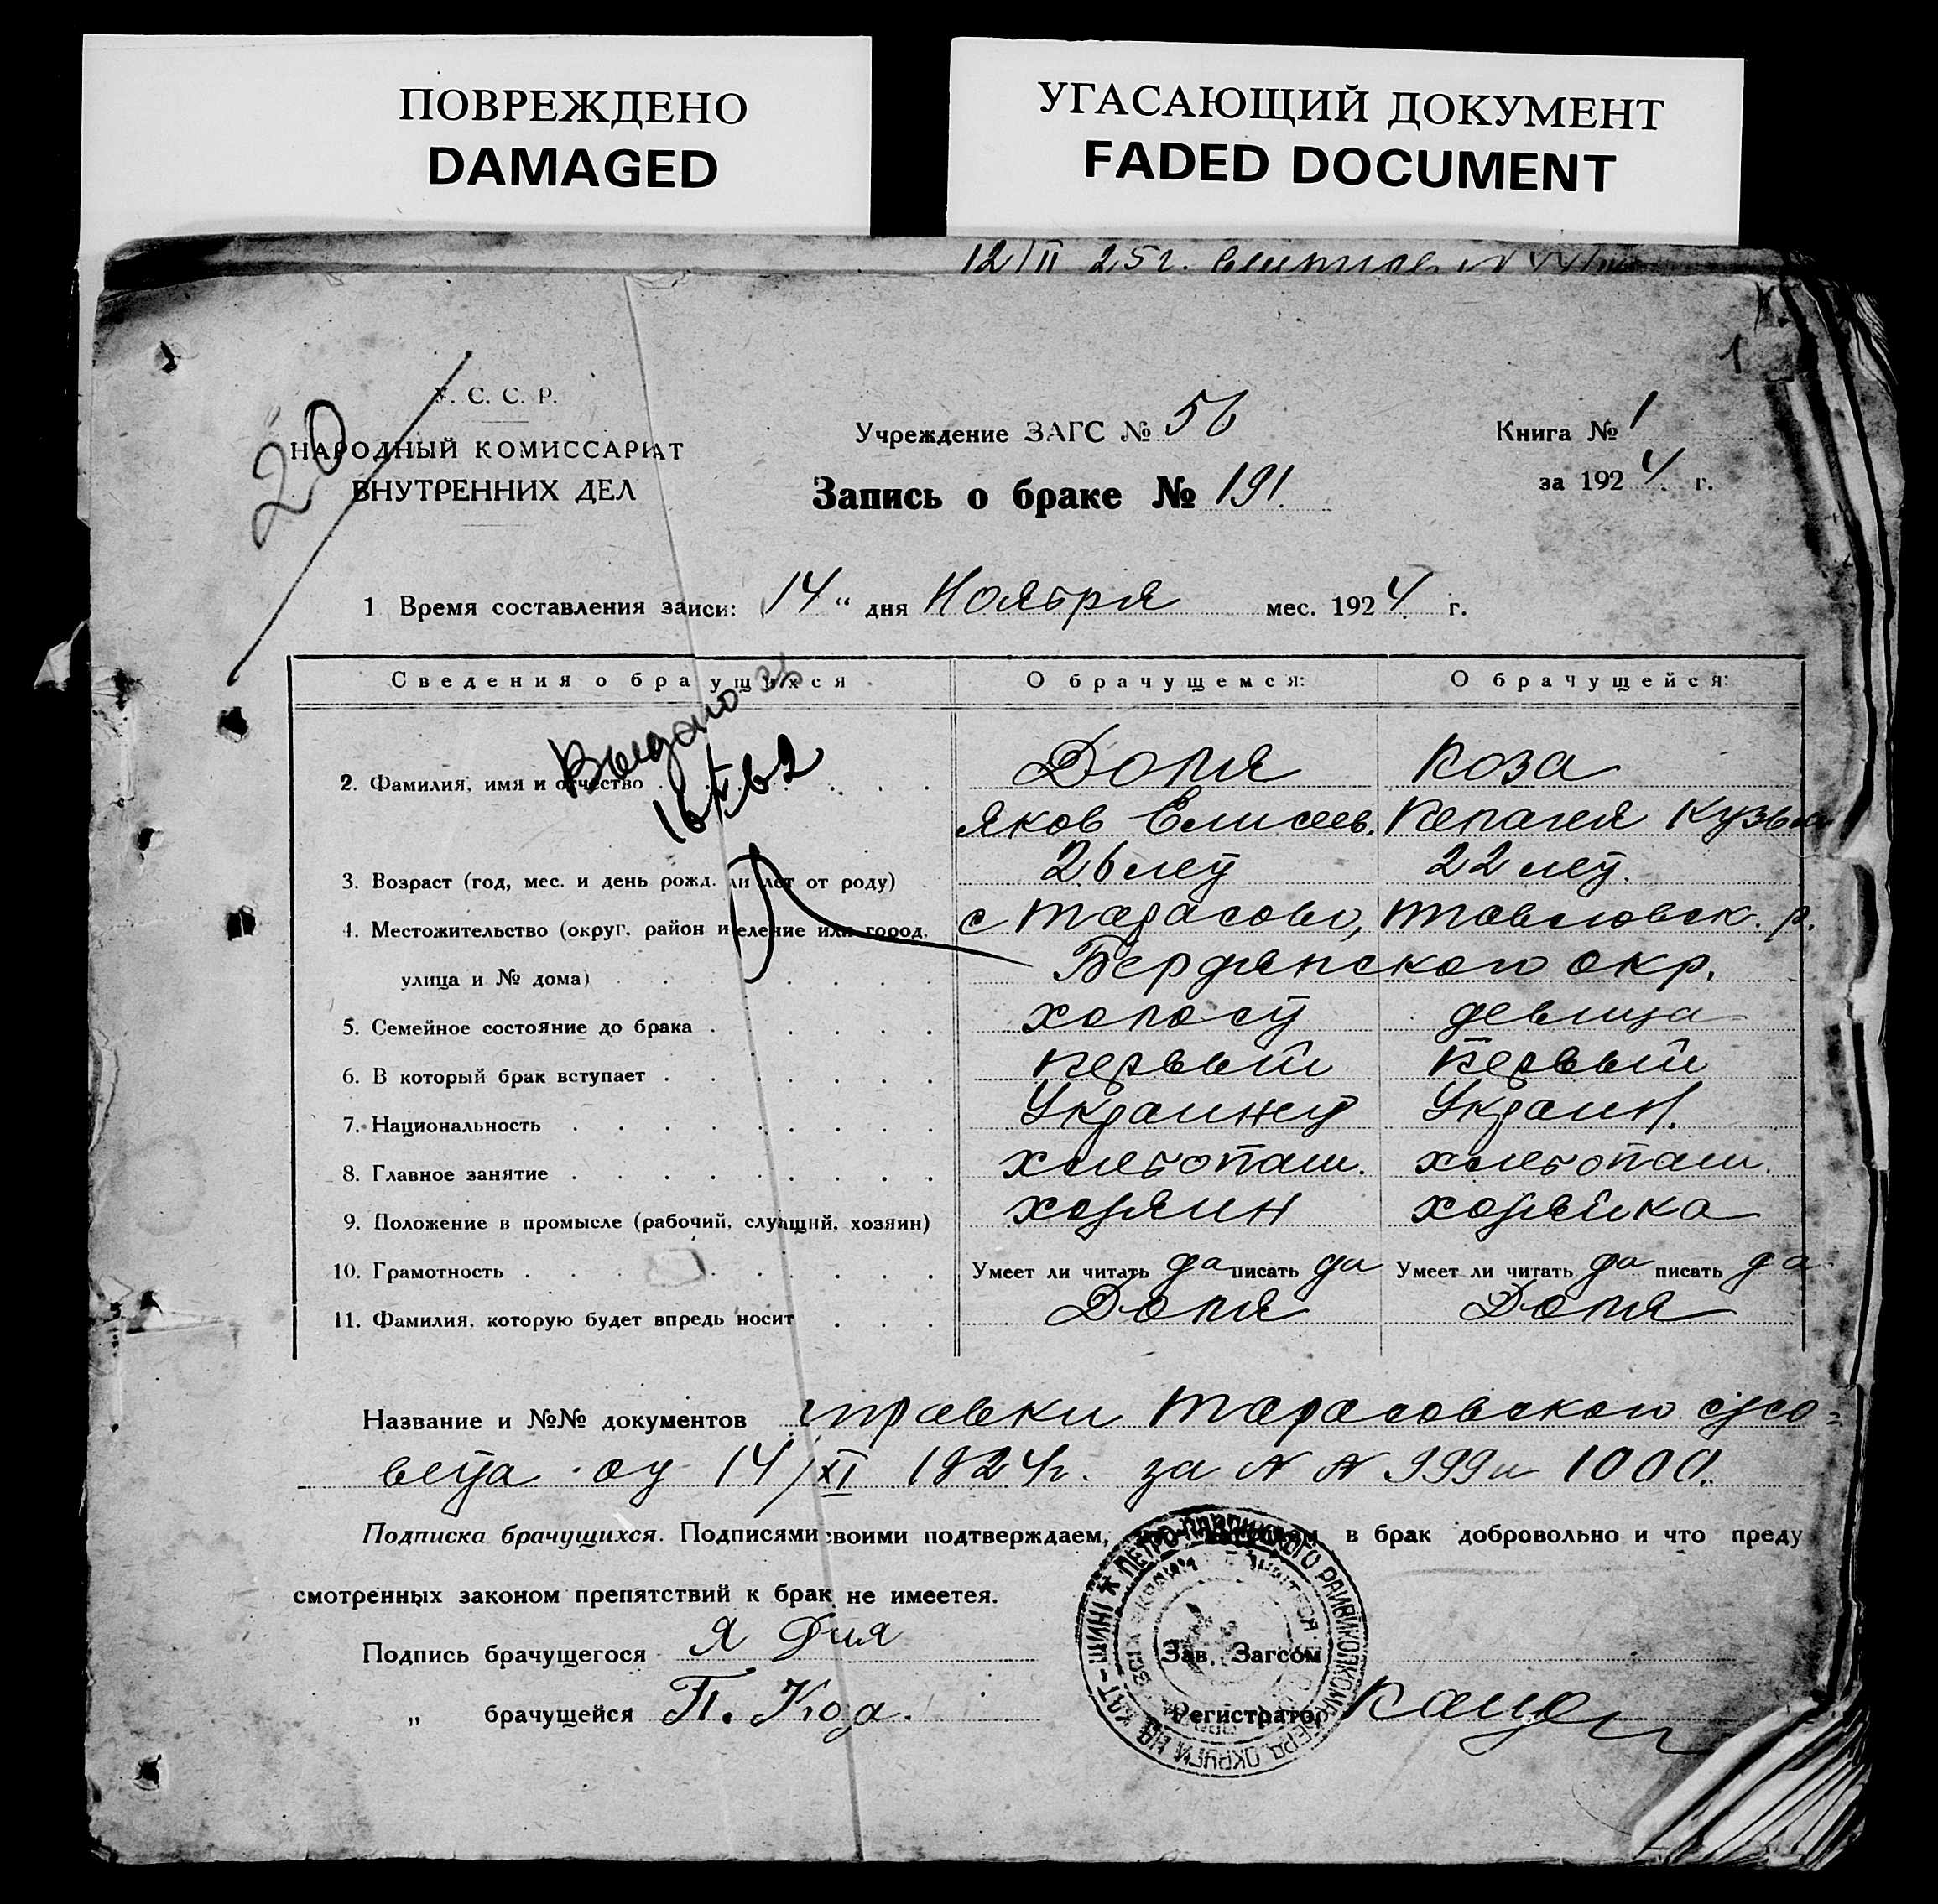 ПОВРЕЖДЕНО
DAMAGED
УГАСАЮЩИЙ ДОКУМЕНТ
FADED DOCUMENT
12/II 25г.
1
20
У. С. С. Р.
НАРОДНЫЙ КОМИССАРИАТ
ВНУТРЕННИХ ДЕЛ
Учреждение ЗАГС № 56
Запись о браке № 191.
Книга № 1
за 1924 г.
1 Время составления заиси: 14 " дня Ноября мес. 1924 г.
Сведения о бра ущихся
О брачущемся:
О брачущейся:
Выдано
16/X 62
2. Фамилия, имя и отчество
Доля
Коза
Яков Елисеев.
Пелагея Кузьм
3. Возраст (год, мес. и день рожд. ли лет от роду)
26 лет
22 лет.
4. Местожительство (округ, район и еление или город,
с Тарасово,
р.
улица и № дома)
Бердянского окр.
5. Семейное состояние до брака
холост
девица
6. В который брак вступает
первый
первый
7. Национальность
Украинец
Украин.
8. Главное занятие
хлебопаш.
хлебопаш.
9. Положение в промысле (рабочий, слу ащий, хозяин)
хозяин
хозяйка
10. Грамотность
Умеет ли читать да писать да
Умеет ли читать да писать да
11. Фамилия, которую будет впредь носит
Доля
Доля
Название и №№ документов справки Тарасовского с/со=
вета от 14/XI 1924г. за N N 999 и 1000.
Подписка брачущихся. Подписями своими подтверждаем, в брак добровольно и что преду
смотренных законом препятствий к брак не имеетея.
Подпись брачущегося Я Доля
Зав. Загсом
„ брачущейся П. Коза.
Регистратор